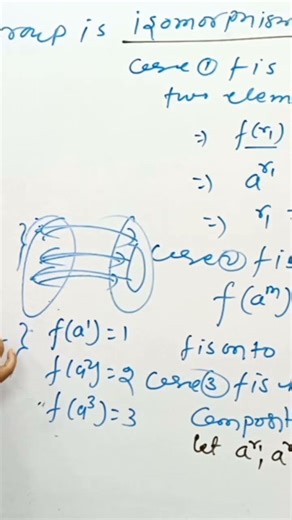 group is isomorphism
case ① f is
two elem
=) f(r₁)
=) a^r₁
=) r₁ =
case ② f is
f(a^m)
} f(a¹) = 1
f is onto
f(a²) = 2
case ③ f is
f(a³) = 3
composit
let a^r₁, a^r